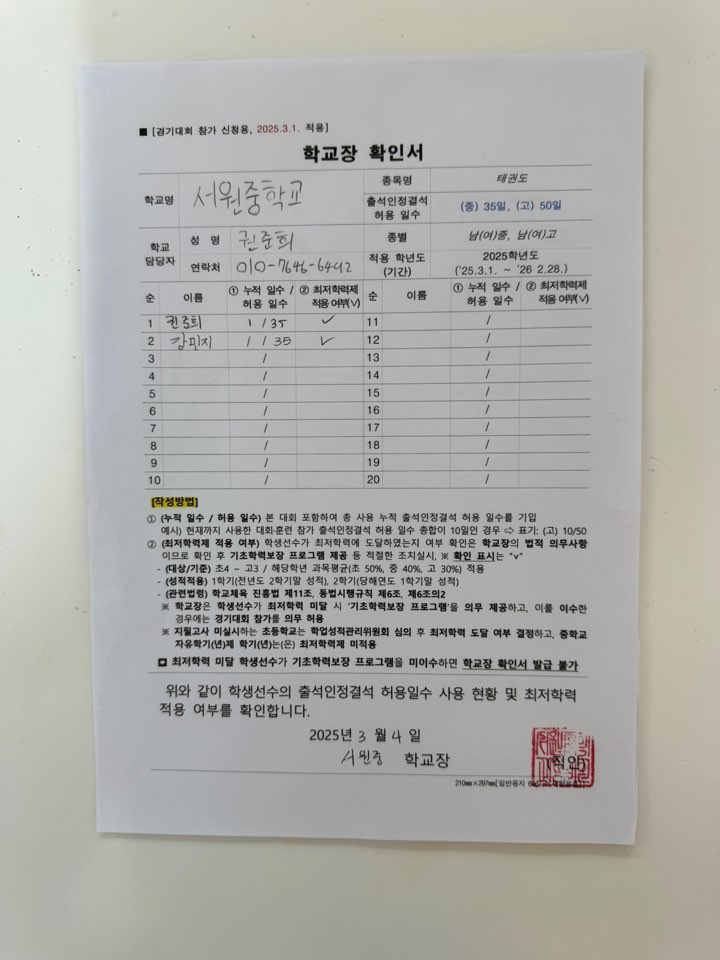 ■ [경기대회 참가 신청용, 2025.3.1. 적용]
학교장 확인서
학교명 서원중학교 종목명 태권도
출석인정결석 허용 일수 (중) 35일, (고) 50일
학교 담당자 성 명 권준희 종별 남(여)중, 남(여)고
연락처 010-7646-6492 적용 학년도 (기간) 2025학년도 ('25.3.1. ~ '26 2.28.)
순 이름 ① 누적 일수 / 허용 일수 ② 최저학력제 적용 여부(∨) 순 이름 ① 누적 일수 / 허용 일수 ② 최저학력제 적용 여부(∨)
1 1 / 35 ✓ 11 /
2 강민지 1 / 35 ✓ 12 /
3 / 13 /
4 / 14 /
5 / 15 /
6 / 16 /
7 / 17 /
8 / 18 /
9 / 19 /
10 / 20 /
[작성방법]
① (누적 일수 / 허용 일수) 본 대회 포함하여 총 사용 누적 출석인정결석 허용 일수를 기입
예시) 현재까지 사용한 대회·훈련 참가 출석인정결석 허용 일수 총합이 10일인 경우 ⇨ 표기: (고) 10/50
② (최저학력제 적용 여부) 학생선수가 최저학력에 도달하였는지 여부 확인은 학교장의 법적 의무사항
이므로 확인 후 기초학력보장 프로그램 제공 등 적절한 조치실시, ※ 확인 표시는 "∨"
- (대상/기준) 초4 ~ 고3 / 해당학년 과목평균(초 50%, 중 40%, 고 30%) 적용
- (성적적용) 1학기(전년도 2학기말 성적), 2학기(당해연도 1학기말 성적)
- (관련법령) 학교체육 진흥법 제11조, 동법시행규칙 제6조, 제6조의2
※ 학교장은 학생선수가 최저학력 미달 시 '기초학력보장 프로그램'을 의무 제공하고, 이를 이수한
경우에는 경기대회 참가를 의무 허용
※ 지필고사 미실시하는 초등학교는 학업성적관리위원회 심의 후 최저학력 도달 여부 결정하고, 중학교
자유학기(년)제 학기(년)는(은) 최저학력제 미적용
➡ 최저학력 미달 학생선수가 기초학력보장 프로그램을 미이수하면 학교장 확인서 발급 불가
위와 같이 학생선수의 출석인정결석 허용일수 사용 현황 및 최저학력
적용 여부를 확인합니다.
2025년 3 월 4 일
서원중 학교장 (직인)
210㎜×297㎜[일반용지